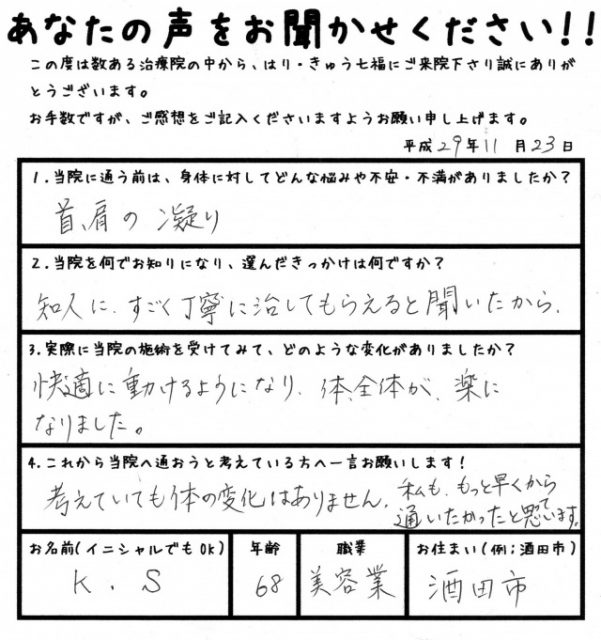 あなたの声をお聞かせください!!
この度は数ある治療院の中から、はり・きゅう七福にご来院下さり誠にありが
とうございます。
お手数ですが、ご感想をご記入くださいますようお願い申し上げます。
平成29年11月23日
1.当院に通う前は、身体に対してどんな悩みや不安・不満がありましたか?
首、肩の凝り
2.当院を何でお知りになり、選んだきっかけは何ですか?
知人に、すごく丁寧に治してもらえると聞いたから、
3.実際に当院の施術を受けてみて、どのような変化がありましたか?
快適に動けるようになり、体全体が、楽に
なりました。
4.これから当院へ通おうと考えている方へ一言お願いします!
考えていても体の変化はありません、私も、もっと早くから
通いたかったと思ています。
お名前(イニシャルでもOK) 年齢 職業 お住まい(例;酒田市)
K.S 68 美容業 酒田市